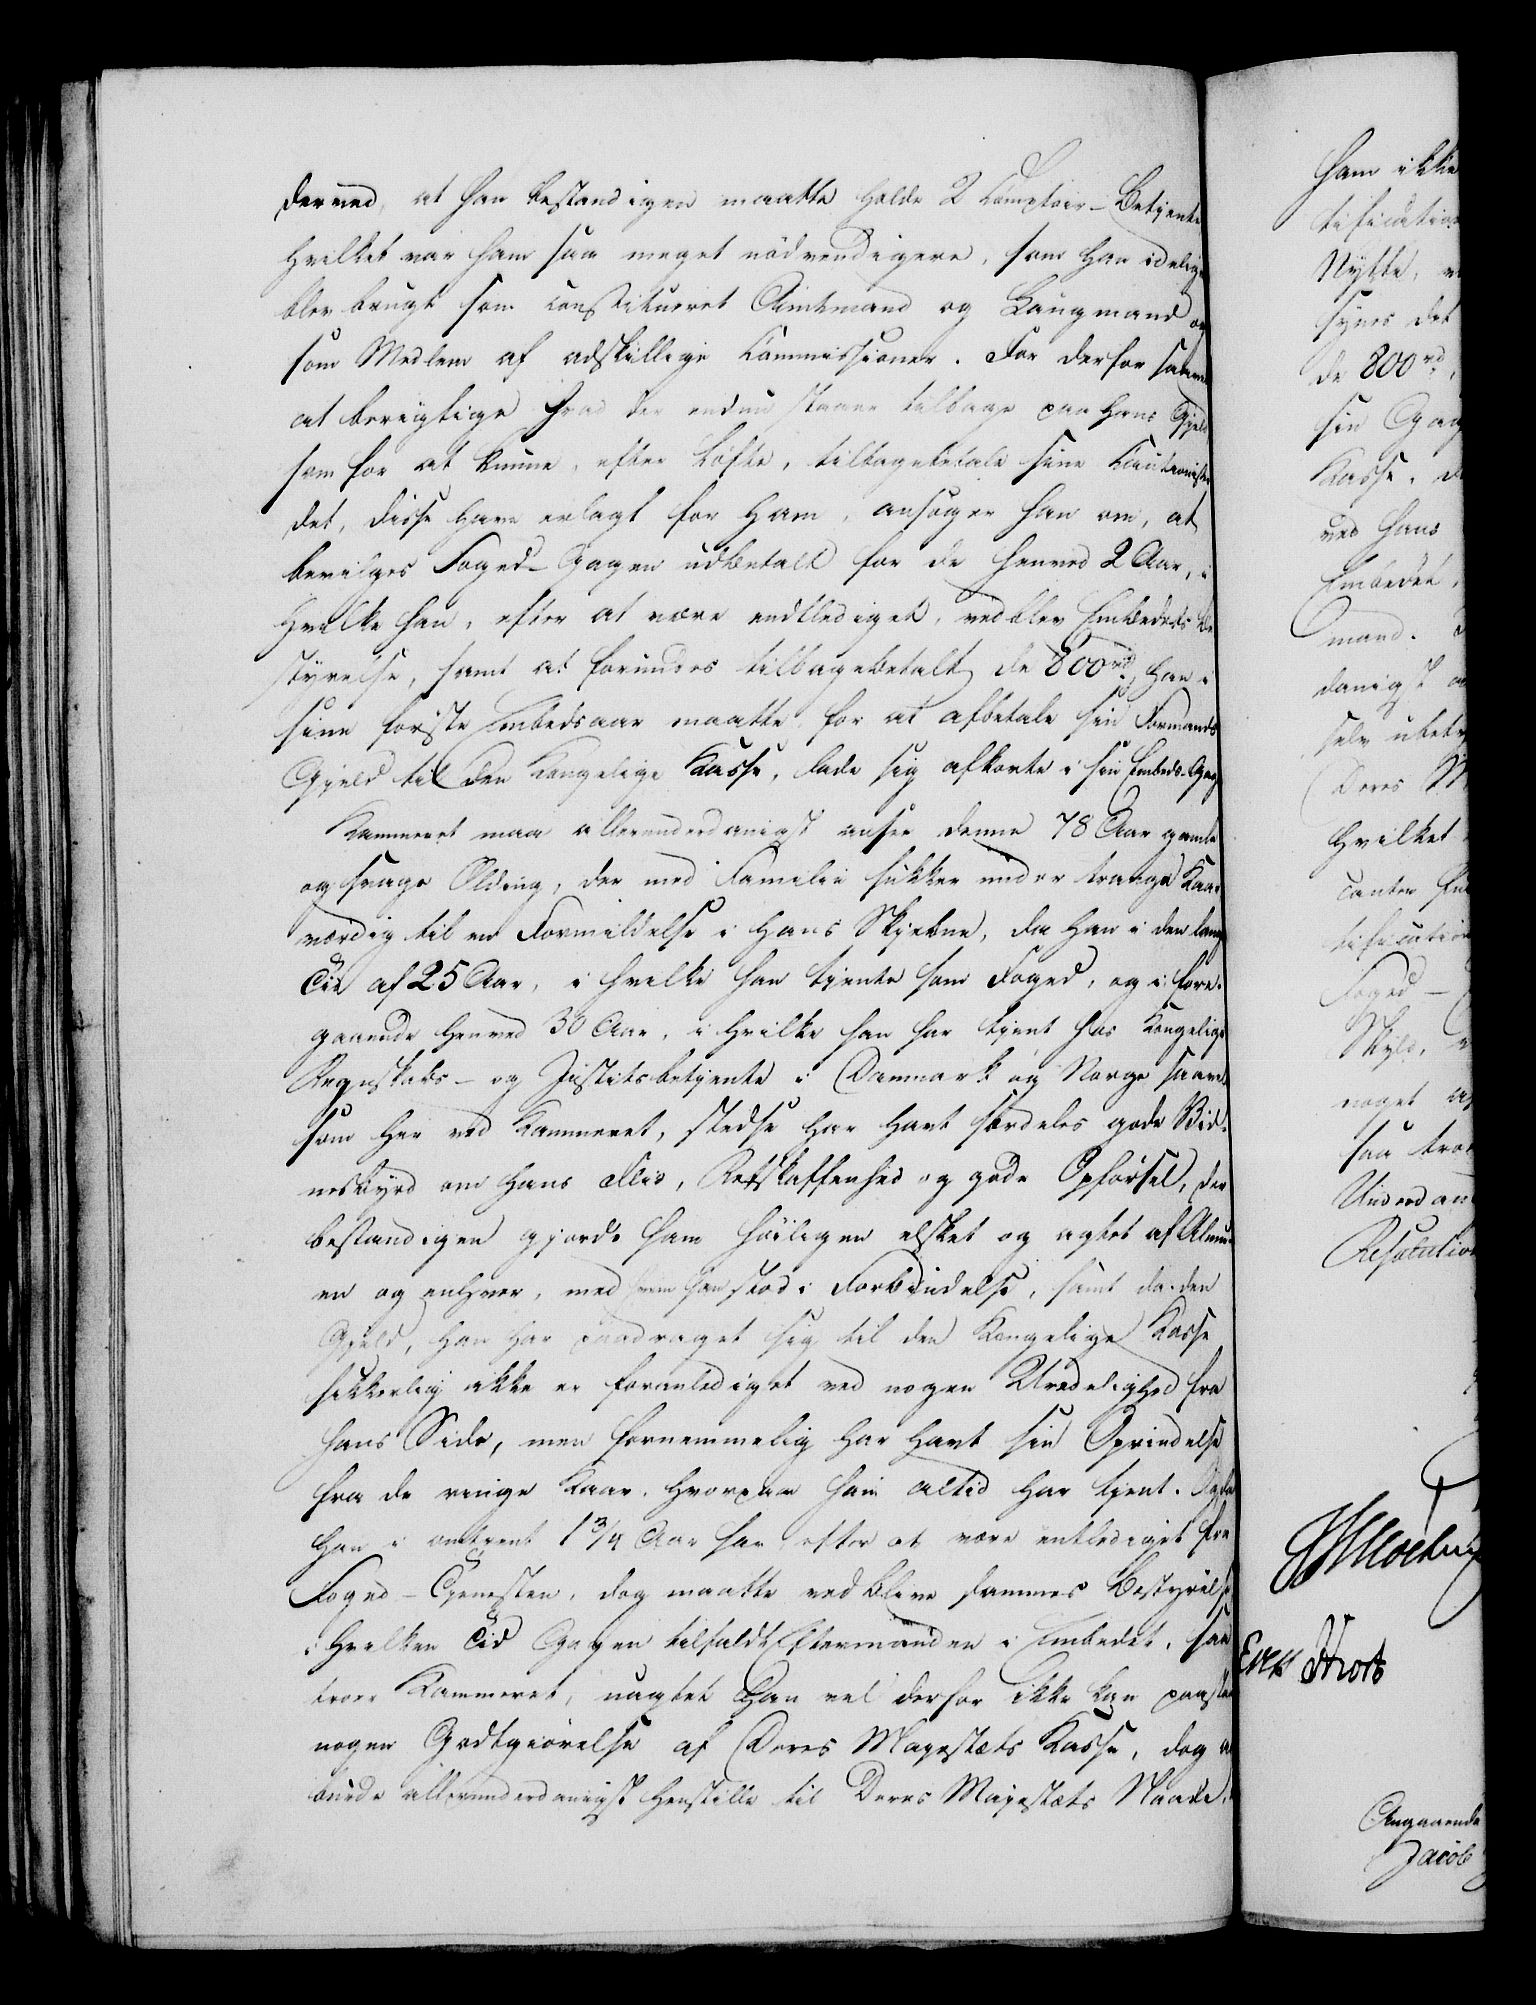 derved, at han bestandigen maatte holde 2 Comptoir-Betjente
hvilket var ham saa meget nödvendigere, som han idelig
blev brugt som constitueret Amtmand og Laugmand og
som Medlem af adskillige Commissioner. For derfor saavel
at berigtige hvad der endnu staaer tilbage paa hans Gjeld
som for at kunne, efter Löfte, tilbagebetale sine Cautionister
det, disse have erlagt for ham, ansöger han om, at
bevilges Foged-Gagen udbetalt for de henved 2 Aar, i
hvilke han, efter at være entlediget, vedblev Embedets Be
styrelse, samt at forundes tilbagebetalt de 800 rd, han i
sine förste Embedsaar maatte for at afbetale sin Formands
Gjeld til den Kongelige Kasse, lade sig afkorte i sin Embeds-Gage
Kammeret maa allerunderdanigst ansee denne 78 Aar gamle
og svage Olding, der med Familie sukker under trange Kaar
værdig til en Formildelse i hans Skjebne, da han i den lange
Tid af 25 Aar, i hvilke han tjente som Foged, og i fore-
gaaende henved 30 Aar, i hvilke han har tjent hos Kongelige
Regnskabs- og Justitsbetjente i Danmark og Norge saavel
som her ved Kammeret, stedse har havt særdeles gode Vid-
nesbyrd om hans Flid, Retskaffenhed og gode Opförsel, der
bestandigen gjorde ham höiligen elsket og agtet af Almu-
en og enhver, med hvem han stod i Forbindelse, samt da den
Gjeld, han har paadraget sig til den Kongelige Kasse
sikkerlig ikke er foranlediget ved nogen Uredelighed fra
hans Side, men fornemmelig har havt sin Oprindelse
fra de ringe Kaar, hvorpaa han altid har tjent. Og da
han i omtrent 1 3/4 Aar har efter at være entlediget fra
Foged-Tjenesten, dog maatte vedblive sammes Bestyrelse
i hvilken Tid Gagen tilfaldt Eftermanden i Embedet, saa
troer Kammeret, uagtet Han vel derfor ikke kan paastaae
nogen Godtgiörelse af Deres Majestæts Kasse, dog at
burde allerunderdanigst henstille til Deres Majestæts Naade,
ham ikke
tification
Nytte,
synes det
de 800 rd,
sin Gag
Kasse,
ved hans
Embedet,
mand.
danigst
selv ubet
Deres M
hvilket
tification
Foged-
Skyld,
noget
saa
Underdan
Resolution
Angaaende
Jacob